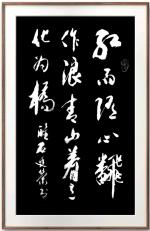 红雨随心翻
作浪青山着意
化为橋